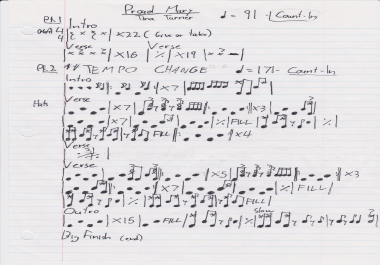 Proud Mary
Tina Turner
Pt.1 ♩= 91 - Count-In
Intro
4 4 x22 (give or take)
Verse Verse
x16 % x19
Pt.2 ** TEMPO CHANGE ♩= 171- Count-In
Intro
x7
Hats Verse
x7 x3
x7 % FILL %
FILL x4
Verse
%
Verse
x5 x3
x7 % FILL
% FILL
Outro Slow
x15 FILL %
Big Finish (end)